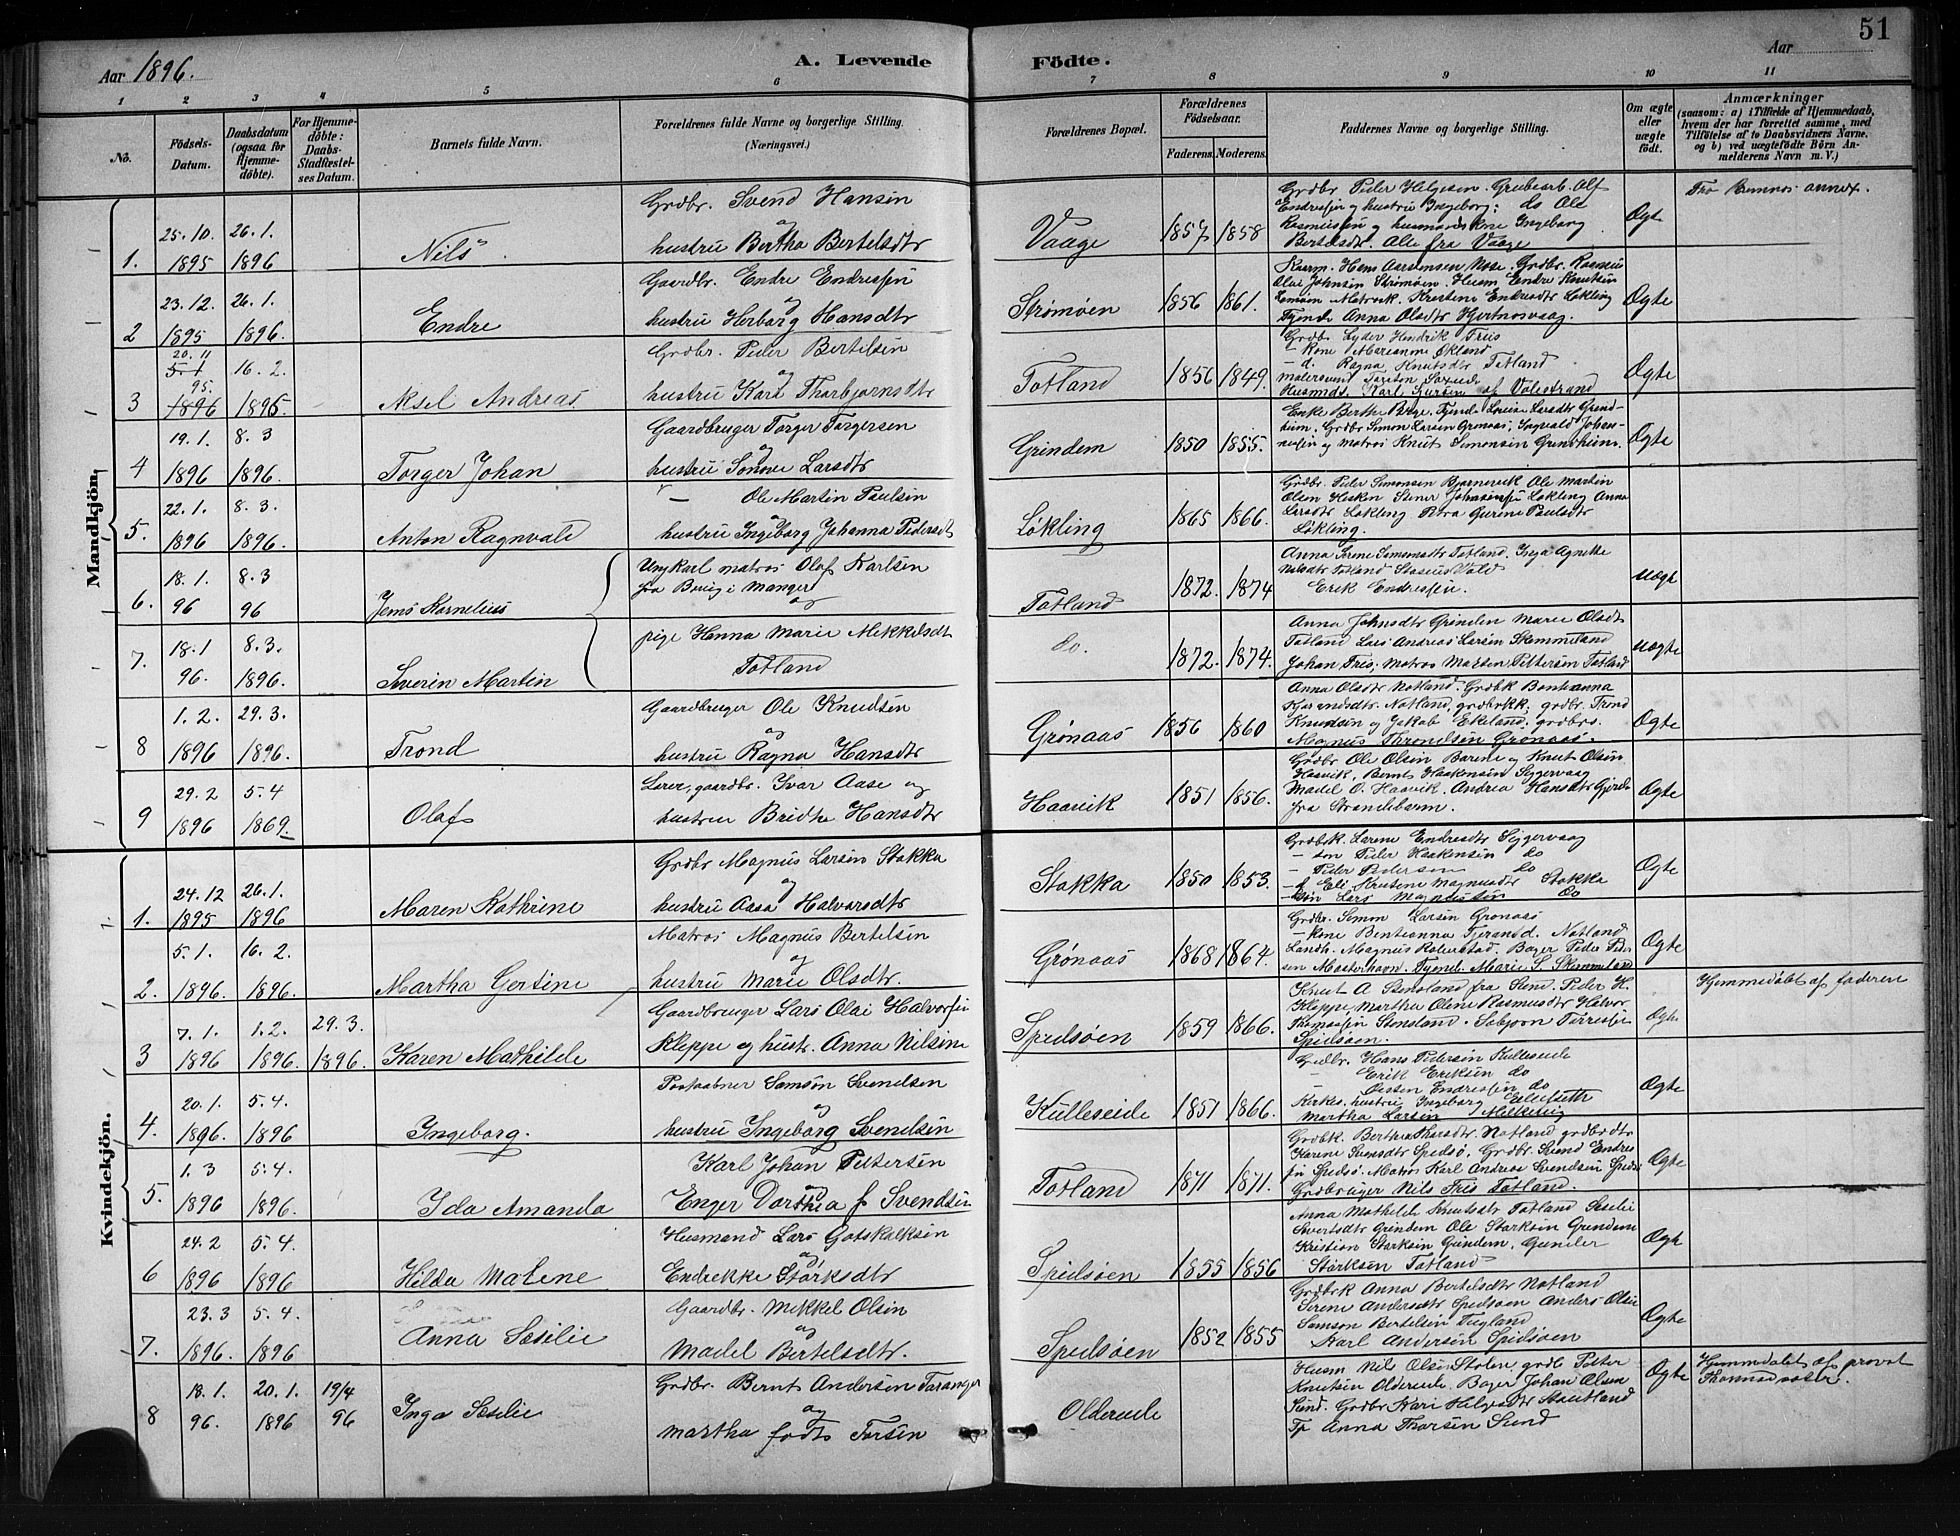 51
Aar 1896.
A. Levende Födte.
Aar
1 2 3 4 5 6 7 8 9 10 11
No.
Födsels-Datum.
Daabsdatum (ogsaa for Hjemme-döbte).
For Hjemme-döbte: Daabs-Stadfæstel-ses Datum.
Barnets fulde Navn.
Forældrenes fulde Navne og borgerlige Stilling.
(Næringsvei.)
Forældrenes Bopæl.
Forældrenes Födselsaar.
Faderens. Moderens.
Faddernes Navne og borgerlige Stilling.
Om ægte eller uægte födt.
Anmærkninger
(saasom: a) i Tilfælde af Hjemmedaab, hvem der har forrettet samme, med Tilföielse af to Daabsvidners Navne. og b) ved uægtefödte Börn An-melderens Navn m. V.)
Mandkjön
1. 25. 10. 1895 26. 1. 1896 Nils.
Grdbr. Svend Hansen
og
hustru Bertha Bertelsdtr
Vaage 1857 1858
Grdbr Peder Helgesen. Grubearb. Olf
Endresen og hustru Ingeborg: do Ole
Rasmussen og husmandskne Ingeborg
Bertelsdt. Ole fra Vaage
Ogte
Fra Bremnes annex.
2 23. 12. 1895 26. 1. 1896. Endre
Gaardbr. Endre Endresen
og
hustru Herborg Hansdtr
Strømøen 1856 1861.
Olai Johnsen Strømøen. Husm Endre Knutsen
Matros K. Kristine Endresdtr Løkling
Tjende Anna Olsdtr
Ogte
3 20. 11 95. 1896 16. 2. 1896. Aksel Andreas
Grdbr. Peder Bertelsen
og
hustru Kari Thorbjørnsdtr
Totland 1856 1849.
Grdbr Lyder Hendrik Friis
- Kone Marianne Økland
- d. Ragna Knutsdtr Totland
Husmds. Karl Sjursen af Valestrand
Ogte
4 19. 1. 1896 8. 3 1896. Torger Johan
Gaardbruger Torger Torgersen
og
hustru Sønnove Larsdtr
Grindem 1850 1855.
Enke Berthe Tjende Lovise Larsdt Grind-
heim. Grdbr Simon Larsen Grønaas, Johan-
nesen og matros Knut Simonsen Grindheim.
Ogte
5. 22. 1. 1896 8. 3. 1896. Anton Ragnvald
— Ole Martin Paulsen
og
hustru Ingeborg Johanna Pedersdt
Løkling 1865 1866.
Grdbr. Peder Simonsen Bjørnevik Ole Martin
Olsen Løkling Anna
Larsdt Løkling Petra Gurine Paulsdtr
Løkling.
Ogte
6. 18. 1. 96 8. 3 96 Jens Kornelius
Ungkarl matros Olaf Karlsen
fra i Manger
og
Totland 1872. 1874
Anna Serene Simonsdtr Totland. Inga Agnette
Nilsdtr Totland
Erik Endresen.
uægt
7. 18. 1 96. 8. 3. 1896. Severin Martin
pige Hanna Marie Mikkelsdt
Totland
do. 1872. 1874.
Anna Johnsdt Grinden Marie Olsdt
Totland Lars Andreas Larsen Skimmeland
Johan Friis; Matros Morten Pettersen Totland
uægte
8 1. 2. 1896 29. 3. 1896. Trond
Gaardbruger Ole Knudsen
og
hustru Ragna Hansdtr
Grønaas 1856 1860
Anna Olsdtr Notland. Grdbk
Notland, grdbrkk; grdbr. Trond
Knudsen og Jakob Ekeland, grdbrs.
Magnus Throndsen Grønaas.
Ogte
9 29. 2 1896 5. 4 1869. Olaf
Lærer, gaardbr. Ivar Aase og
hustru Bridhe Hansdtr
Haavik 1851 1856.
Grdbr Ole Olsen Barene og Knut Olsen
Haavik. Bernt Haakensen Siggervaag
Madel O. Haavik. Andrea Hansdtr
fra Strandebarm.
Ogte
Kvindekjön.
1. 24. 12 1895 26. 1. 1896 Maren Kathrine
Grdbr Magnus Larsen Stokka
og
hustru Aasa Halvarsdtr
Stokka 1850 1853.
Grdbk. Larene Endresdtr Siggervaag
- søn Peder Haakensen do
- Peder Pedersen do
- d Eli Kristine Magnusdtr Stokka
- søn Lars Magnussen do
Ogte
2. 5. 1. 1896. 16. 2. 1896. Martha Gertine
Matros Magnus Bertelsen
og
hustru Marie Olsdtr.
Grønaas 1868 1864.
Grdbr. Simon Larsen Grønaas
- kone Bentianna Notland
Landh. Magnus Bager Peder Peder-
sen Mosterhavn. Tjend. Marie S. Skimmeland
Ogte
3 7. 1. 1896 1. 2. 1896. 29. 3. 1896. Karen Mathilde
Gaardbruger Lars Olai Halvorsen
Kleppe og hustr. Anna Nilsine
Spidsøen 1859 1866.
Knut A Stensland fra Sund. Peder H.
Kleppe, Martha Oline Rasmusdtr Halvor
Thomassen Stensland.
Spidsøen.
Ogte
Hjemmedøbt af faderen
4. 20. 1. 1896. 5. 4. 1896 Ingeborg.
Postaabner Samson Svendsen
og
hustru Ingeborg Svendsen
Kulleseide 1851 1866.
Grdbr. Hans Pedersen Kulleseide
- Erik Eriksen do
- Endresen do
Kirkes. hustru Ingeborg
Martha Larsen
Ogte
5. 1. 3 1896 5. 4. 1896. Ida Amanda
Karl Johan Pettersen
og
Enger Dorthea f Svendsen
Totland 1871 1871.
Grdbk. Bertha Notland grdbrdtr
Karene Svensdtr Spidsø. Grdbr Svend Endres-
sen Spidsø. Matros Karl Andreas Svendsen
Grdbruger Nils Friis Totland.
Ogte
6 24. 2 1896 5. 4. 1896 Hilda Malene
Husmand Lars Gotskalksen
og
Endrekke Størksdtr
Spidsøen 1855 1856
Anna Mathilde Totland Sesilie
Sivertsdtr Grindem Ole Størksen Grindem
Kristian Størksen Grindem, Gunder
Størksen Totland
Ogte
7. 23. 3 1896. 5. 4. 1896 Anna Sesilie
Gaardbr. Mikkel Olsen
og
Madel Bertelsdtr.
Spidsøen 1852 1855
Grdbrk Anna Bertelsdtr Notland
Serene Andersdtr Spidsøen Anders Olsen
Samson Bertelsen
Karl Andersen Spidsøen
Ogte
8 18. 1. 96. 20. 1. 1896 19/4 96 Inga Sesilie
Grdbr. Bernt Andersen Taranger
og
Martha født Torsen
Oldereide
Husm Nils Olsen grdb Petter
Knutsen Oldereide. Bager Johan Olsen
Sund. Grdbr Kari
Tp Anna Thorsen Sund
Ogte
Hjemmedøbt af provst